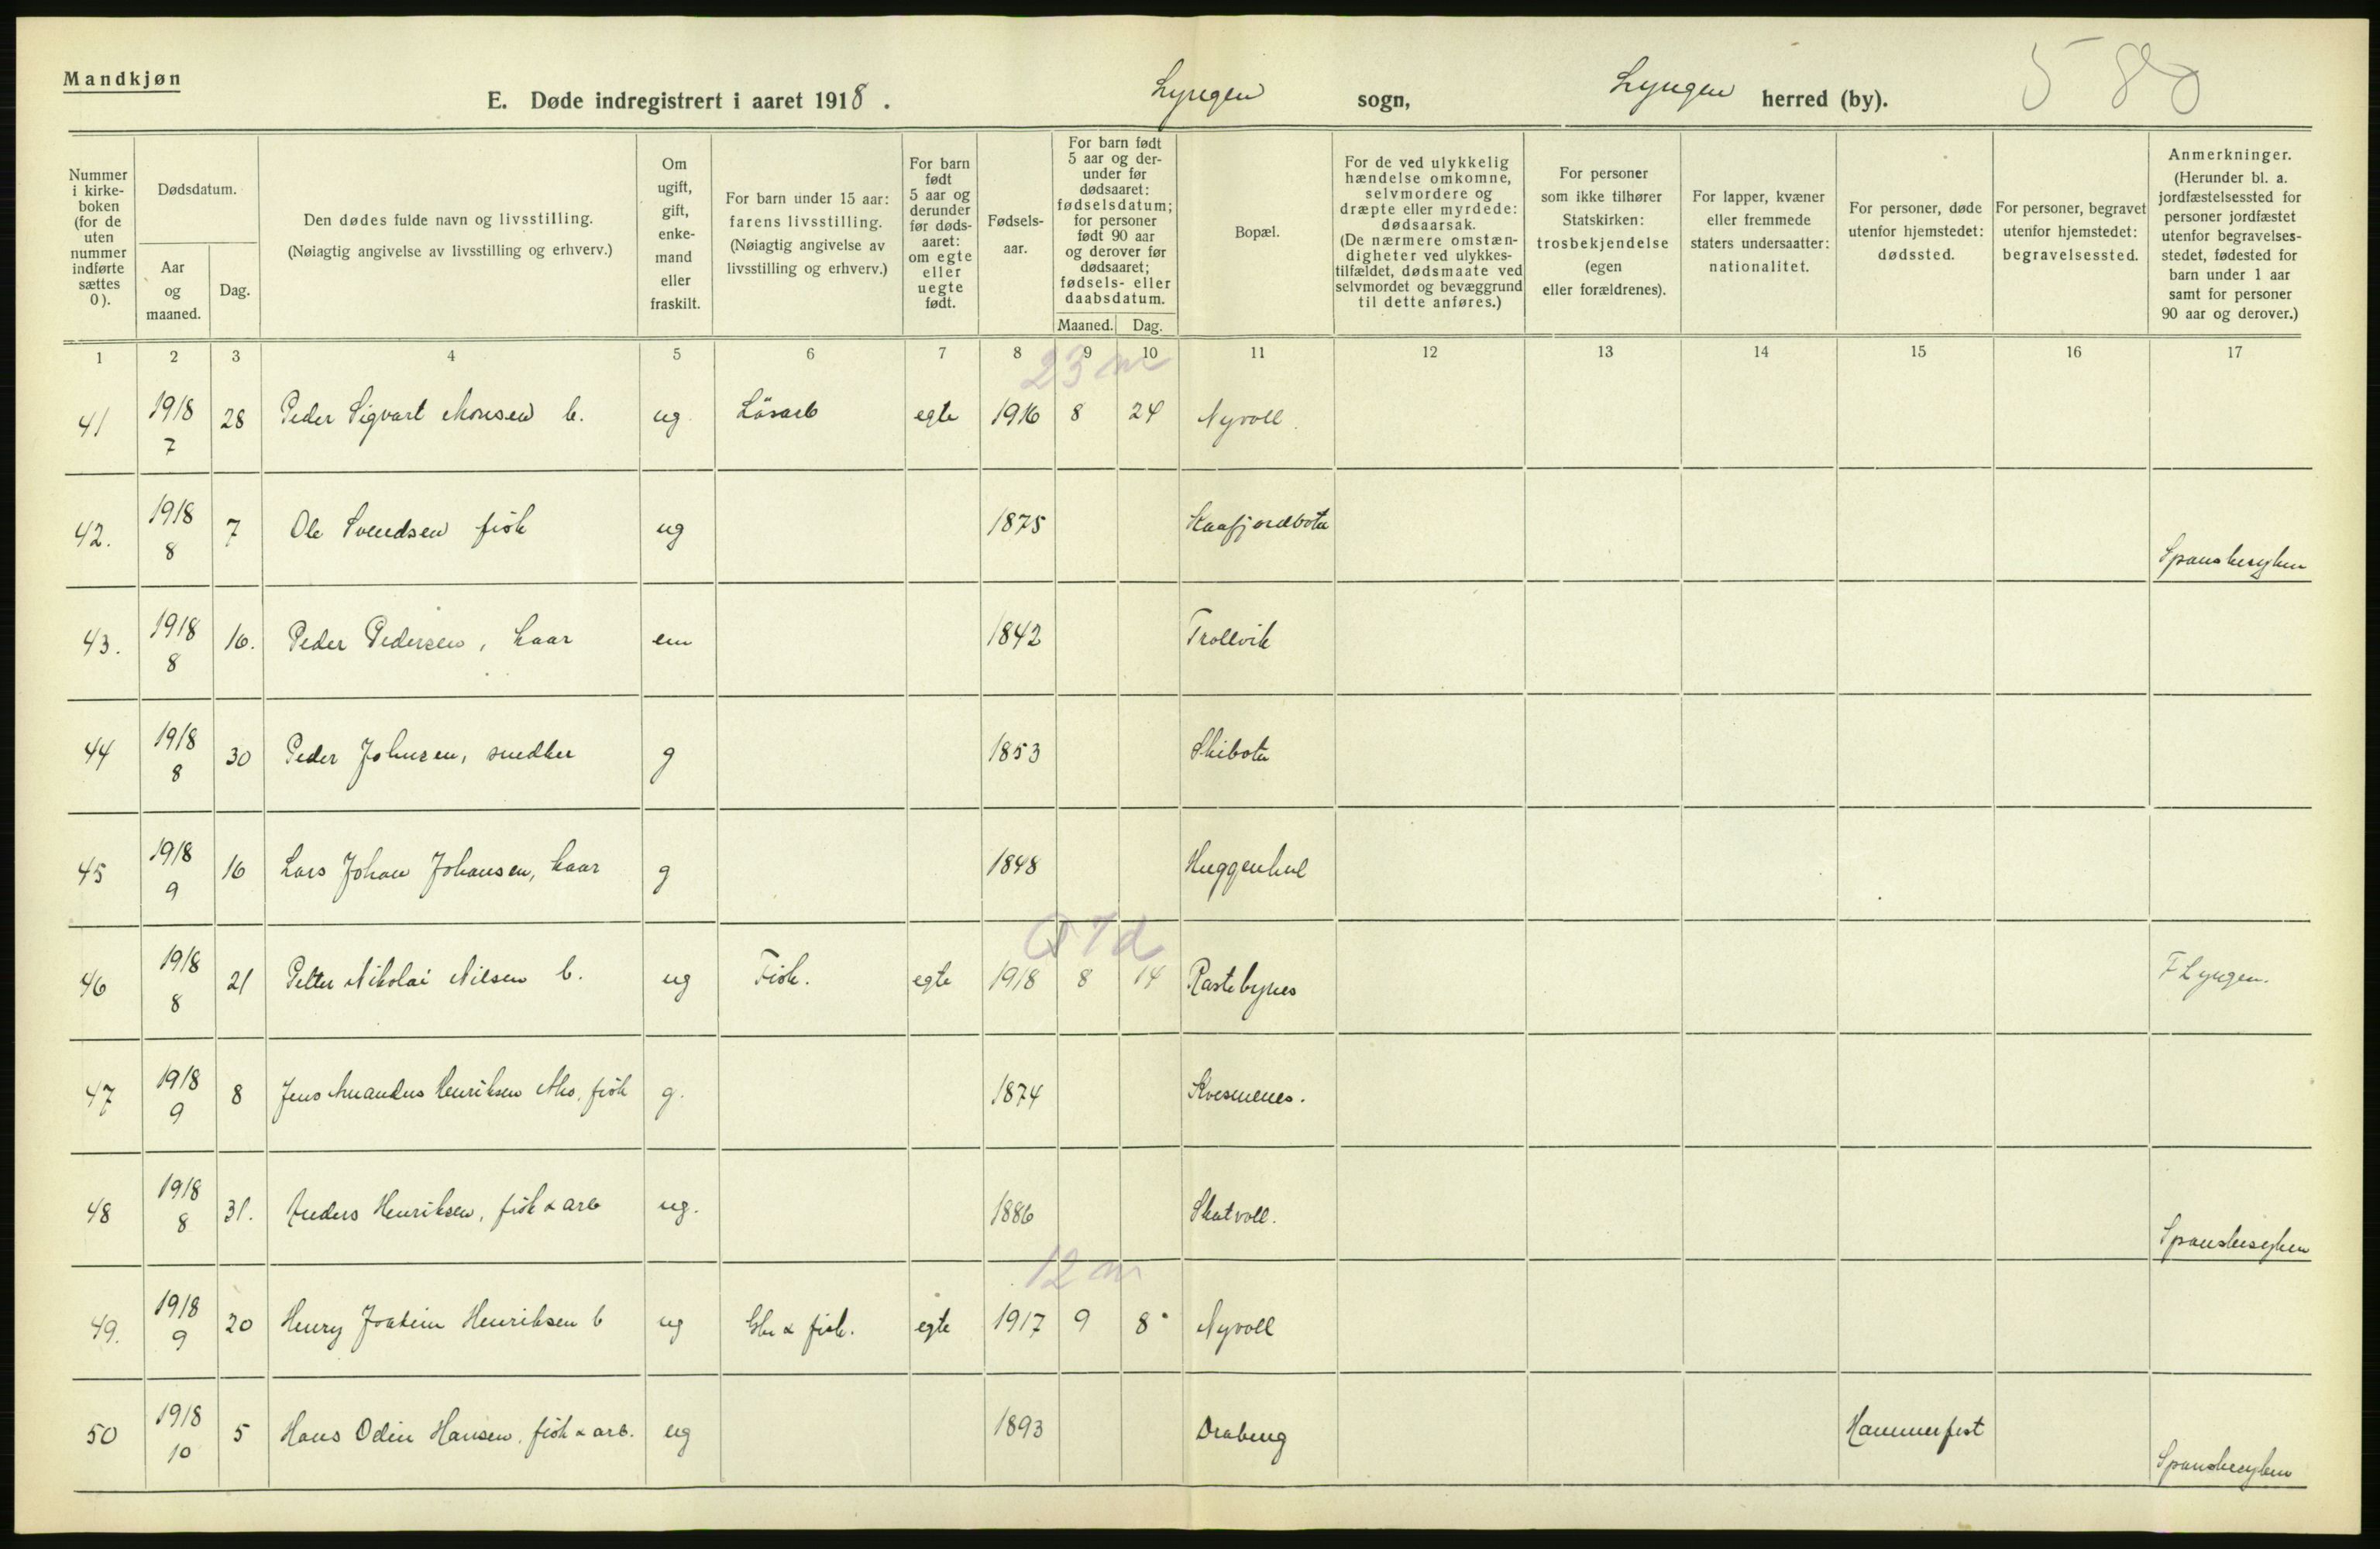 Mandkjøn
E. Døde indregistrert i aaret 1918.
Lyngen sogn,
Lyngen herred (by).
5 80
Nummer i kirke-boken (for de uten nummer indførte sættes 0).
Dødsdatum.
Aar og maaned.
Dag.
Den dødes fulde navn og livsstilling.
(Nøiagtig angivelse av livsstilling og erhverv.)
Om ugift, gift, enke-mand eller fraskilt.
For barn under 15 aar: farens livsstilling. (Nøiagtig angivelse av livsstilling og erhverv.)
For barn født 5 aar og derunder før døds-aaret: om egte eller uegte født.
Fødsels-aar.
For barn født 5 aar og der-under før dødsaaret: fødselsdatum; for personer født 90 aar og derover før dødsaaret; fødsels- eller daabsdatum.
Maaned. Dag.
Bopæl.
For de ved ulykkelig hændelse omkomne, selvmordere og dræpte eller myrdede: dødsaarsak. (De nærmere omstæn-digheter ved ulykkes-tilfældet, dødsmaate ved selvmordet og bevæggrund til dette anføres.)
For personer som ikke tilhører Statskirken: trosbekjendelse (egen eller forældrenes).
For lapper, kvæner eller fremmede staters undersaatter: nationalitet.
For personer, døde utenfor hjemstedet: dødssted.
For personer, begravet utenfor hjemstedet: begravelsessted.
Anmerkninger. (Herunder bl. a. jordfæstelsessted for personer jordfæstet utenfor begravelses-stedet, fødested for barn under 1 aar samt for personer 90 aar og derover.)
1 2 3 4 5 6 7 8 9 10 11 12 13 14 15 16 17
23 m
41 1918 7 28 Peder Sigvart Monsen b. ug. Lösarb egte 1916 8 24 Nyvoll.
42. 1918 8 7 Ole Svendsen fisk ug 1875 Kaafjordbotn Spansbesyken
43. 1918 8 16. Peder Pedersen, kaar em 1842 Trollvik
44 1918 8 30 Peder Johnsen, snedker g 1853 Skibotn
45 1918 9 16 Lars Johan Johansen, kaar g 1848
7 d
46 1918 8 21 Petter Nikolai Nilsen b. ug Fisk. egte 1918 8 14 Rastebynes F Lyngen.
47 1918 9 8 Jens Amandus Henriksen fisk g. 1874 Kvesmenes.
48 1918 8 31. Anders Henriksen, fisk & arb ug. 1886 Skatvoll. Spansbesyken
12 m
49. 1918 9 20 Henry Joakim Henriksen b ug Gbr & fisk. egte 1917 9 8 Nyvoll
50 1918 10 5 Hans Odin Hansen, fisk & arb. ug 1893 Hammerfest Spansbesyken